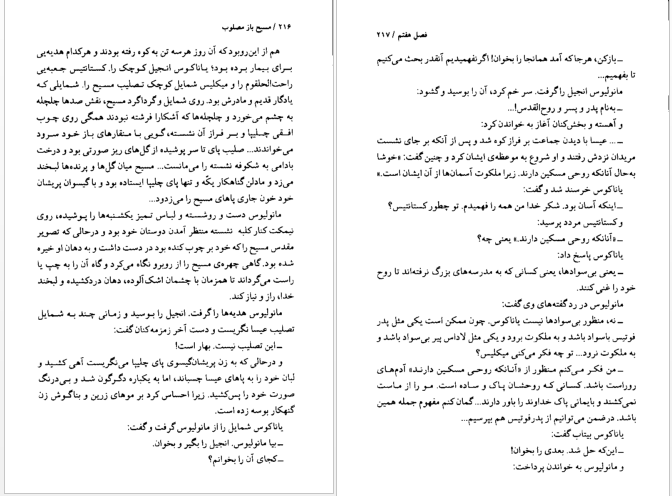 ۲۱۶ / مسیح باز مصلوب
هم از این‌روبود که آن روز هرسه تن به کوه رفته بودند و هرکدام هدیه‌یی
برای بیمار برده بود؛ یاناکوس انجیل کوچک را. کستانتیس جعبه‌یی
راحت‌الحلقوم را و میکلیس شمایل کوچک تصلیب مسیح را. شمایلی که
یادگار قدیم و مادرش بود. روی شمایل و گرداگرد مسیح، نقش صدها چلچله
به چشم می‌خورد و چلچله‌ها که آشکارا فرشته نبودند همگی روی چوب
افقی چلیپا و بر فراز آن نشسته، گویی با منقارهای باز خود سرود
می‌خواندند... صلیب پای تا سر پوشیده از گل‌های ریز صورتی بود و درخت
بادامی به شکوفه نشسته را می‌مانست... مسیح میان گل‌ها و پرنده‌ها لبخند
می‌زد و مادلن گناهکار یکّه و تنها پای چلیپا ایستاده بود و با گیسوان پریشان
خود خون جاری پاهای مسیح را می‌زدود...
مانولیوس دست و روشسته و لباس تمیز یکشنبه‌ها را پوشیده، روی
نیمکت کنار کلبه نشسته منتظر آمدن دوستان خود بود و درحالی که تصویر
مقدس مسیح را که خود بر چوب کنده بود در دست داشت و به دهان او خیره
شده بود. گاهی چهره‌ی مسیح را از روبرو نگاه می‌کرد و گاه آن را به چپ یا
راست می‌گرداند تا همزمان با چشمان اشک‌آلوده، دهان دردکشیده و لبخند
خدا، راز و نیاز کند.
مانولیوس هدیه‌ها را گرفت. انجیل را بوسید و زمانی چند به شمایل
تصلیب عیسا نگریست و دست آخر زمزمه‌کنان گفت:
ـ این تصلیب نیست. بهار است!
و درحالی که به زن پریشان‌گیسوی پای چلیپا می‌نگریست آهی کشید و
لبان خود را به پاهای عیسا چسباند، اما به یکباره دگرگون شد و بی‌درنگ
صورت خود را پس‌کشید. زیرا احساس کرد بر موهای زرین و بناگوش زن
گنهکار بوسه زده است.
یاناکوس شمایل را از مانولیوس گرفت و گفت:
ـ بیا مانولیوس. انجیل را بگیر و بخوان.
ـ کجای آن را بخوانم؟
فصل هفتم / ۲۱۷
ـ بازکن، هرجا که آمد همانجا را بخوان! اگر نفهمیدیم آنقدر بحث می‌کنیم
تا بفهمیم...
مانولیوس انجیل را گرفت. سر خم کرد، آن را بوسید و گشود:
ـ به‌نام پدر و پسر و روح‌القدس!...
و آهسته و بخش‌کنان آغاز به خواندن کرد:
ـ ... عیسا با دیدن جماعت بر فراز کوه شد و پس از آنکه بر جای نشست
مریدان نزدش رفتند و او شروع به موعظه‌ی ایشان کرد و چنین گفت: «خوشا
به‌حال آنانکه روحی مسکین دارند. زیرا ملکوت آسمان‌ها از آن ایشان است.»
یاناکوس خرسند شد و گفت:
ـ اینکه آسان بود. شکر خدا من همه را فهمیدم. تو چطور کستانتیس؟
و کستانتیس مردد پرسید:
ـ «آنانکه روحی مسکین دارند.» یعنی چه؟
یاناکوس پاسخ داد:
ـ یعنی بی‌سوادها، یعنی کسانی که به مدرسه‌های بزرگ نرفته‌اند تا روح
خود را غنی کنند.
مانولیوس در رد گفته‌های وی گفت:
ـ نه، منظور بی‌سوادها نیست یاناکوس. چون ممکن است یکی مثل پدر
فوتیس باسواد باشد و به ملکوت برود و یکی مثل لاداس پیر بی‌سواد باشد و
به ملکوت نرود... تو چه فکر می‌کنی میکلیس؟
ـ من فکر می‌کنم منظور از «آنانکه روحی مسکین دارند» آدم‌های
روراست باشد. کسانی که روحشان پاک و ساده است. مو را از ماست
نمی‌کشند و باایمانی پاک خداوند را باور دارند... گمان کنم مفهوم جمله همین
باشد. درضمن می‌توانیم از پدرفوتیس هم بپرسیم...
یاناکوس بیتاب گفت:
ـ این‌که حل شد. بعدی را بخوان!
و مانولیوس به خواندن پرداخت: